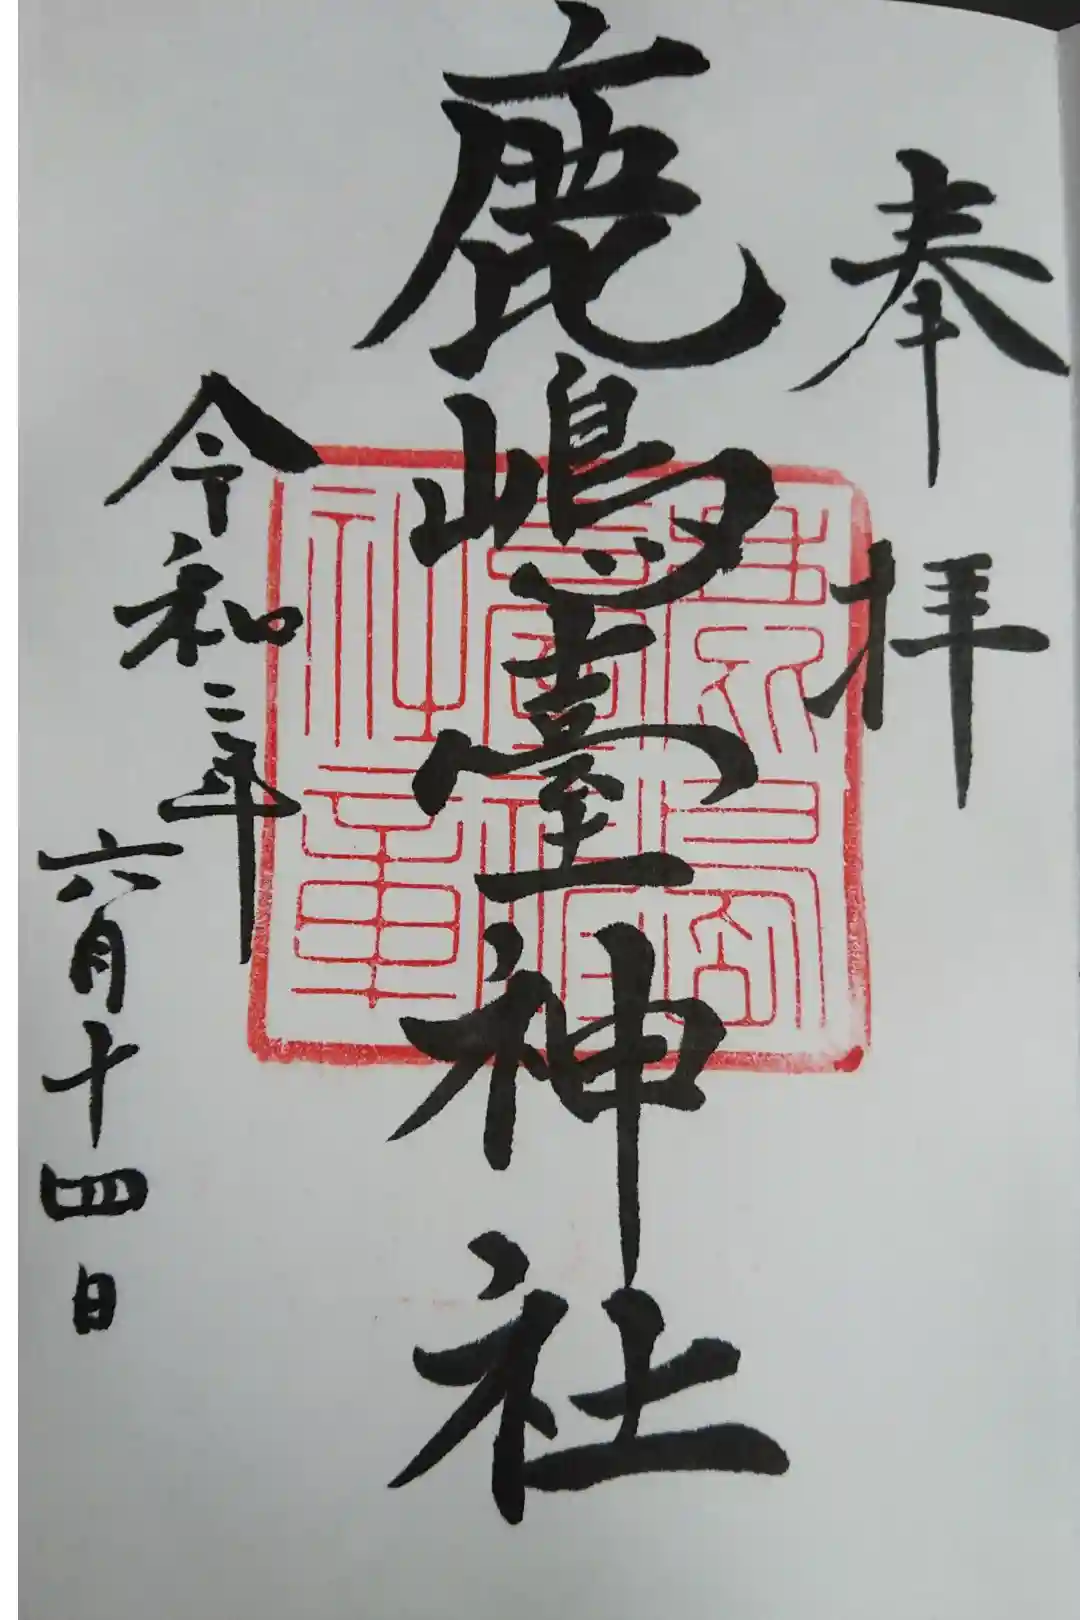 奉拝
鹿嶋臺神社
令和二年
六月十四日